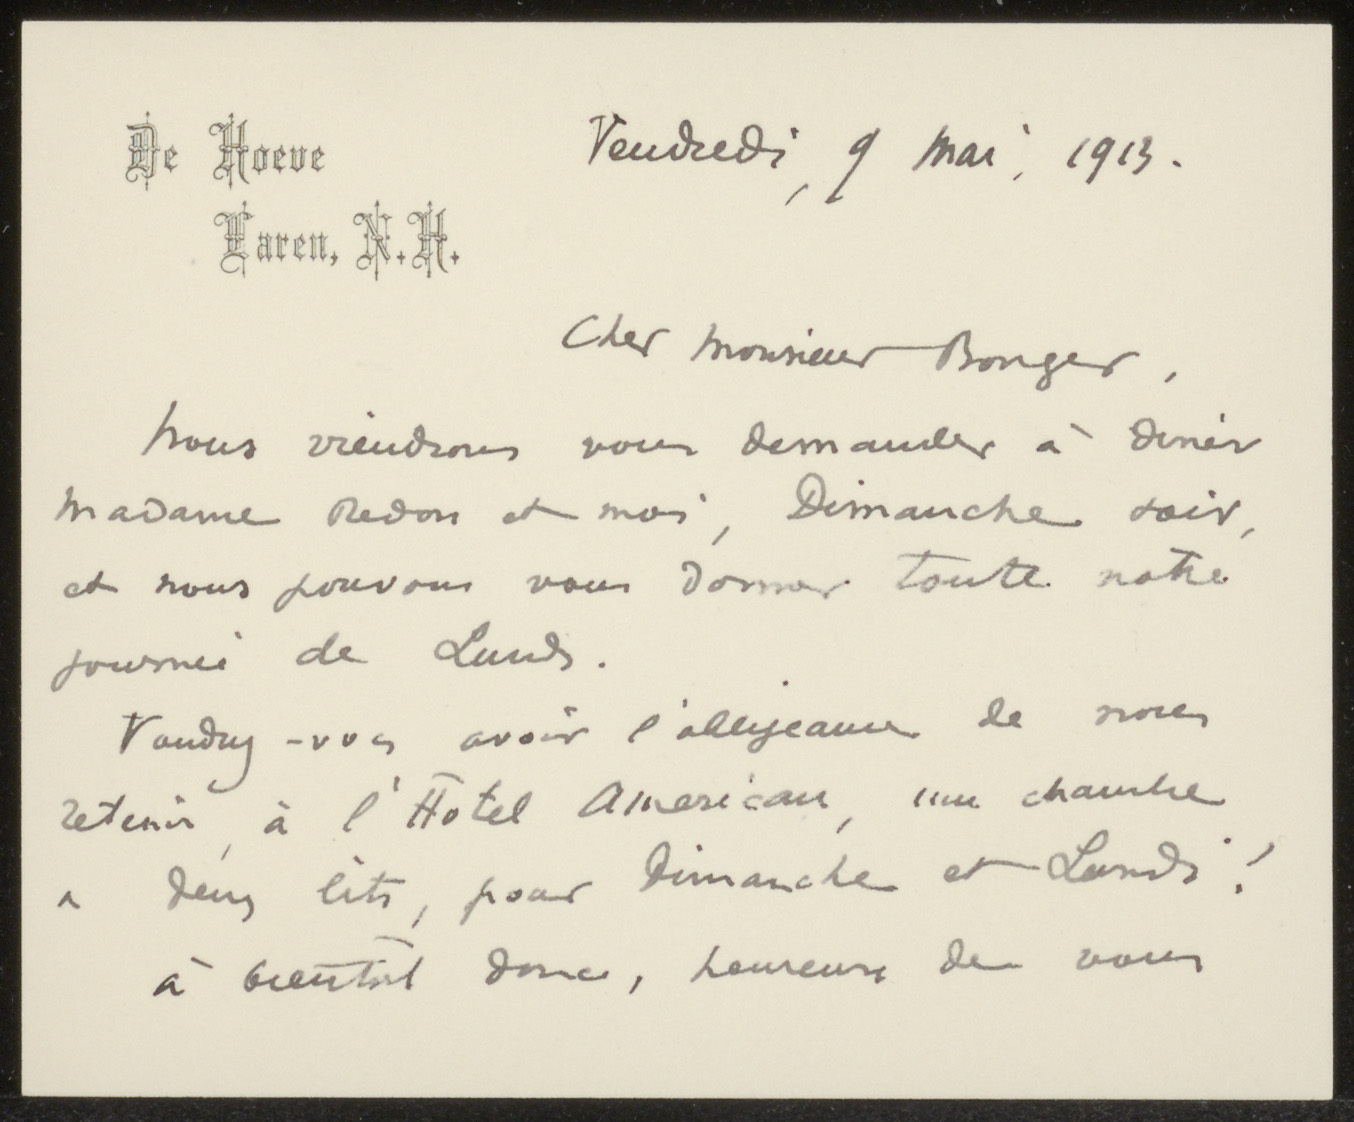 De Hoeve
Laren, N.H.
Vendredi, 9 mai, 1913.
Cher monsieur Bonger,
Nous viendrons vous demander à diner
Madame Redon et moi, Dimanche soir,
et nous pouvons vous donner toute notre
journée de Lundi.
Voudrez-vous avoir l'obligeance de nous
retenir, à l'Hôtel Américain, une chambre
a deux lits, pour Dimanche et Lundi!
à bientôt donc, heureux de vous